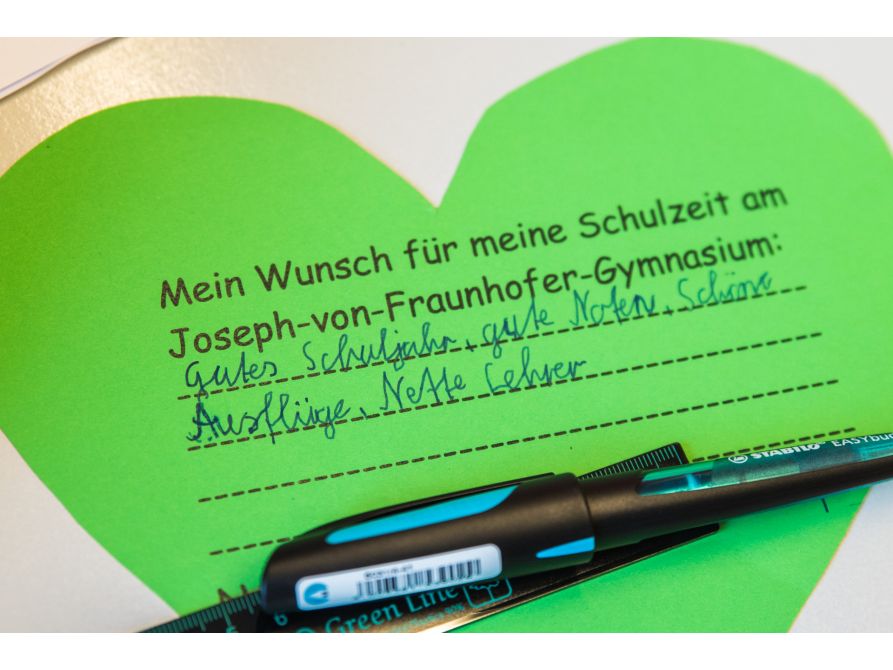 Mein Wunsch für meine Schulzeit am
Joseph-von-Fraunhofer-Gymnasium:
Gutes Schuljahr, gute Noten, Schöne
Ausflüge, Nette Lehrer
STABILO EASYbu
Green Line
5 6